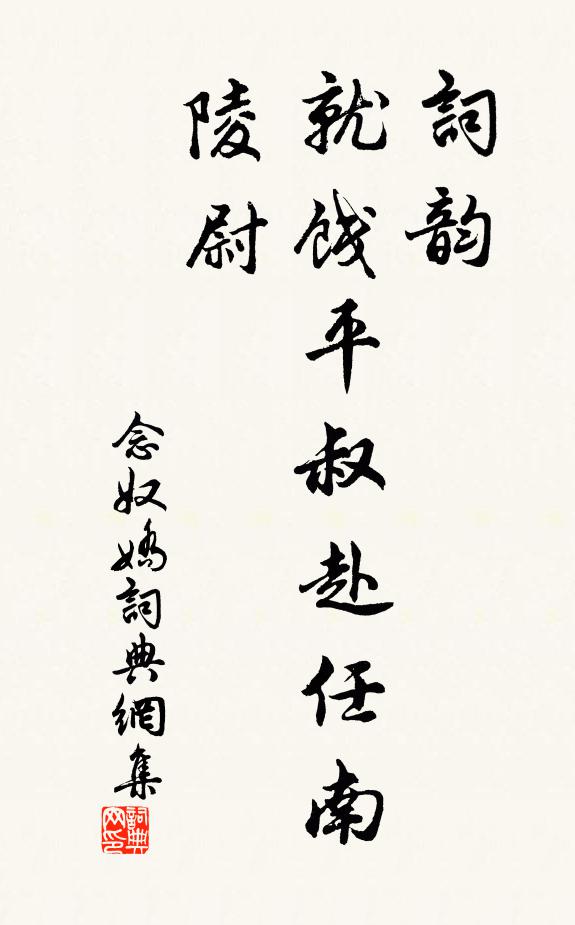 詞韵
就餞平叔赴任南
陵尉
念奴嬌詞典網集
詞典
网印